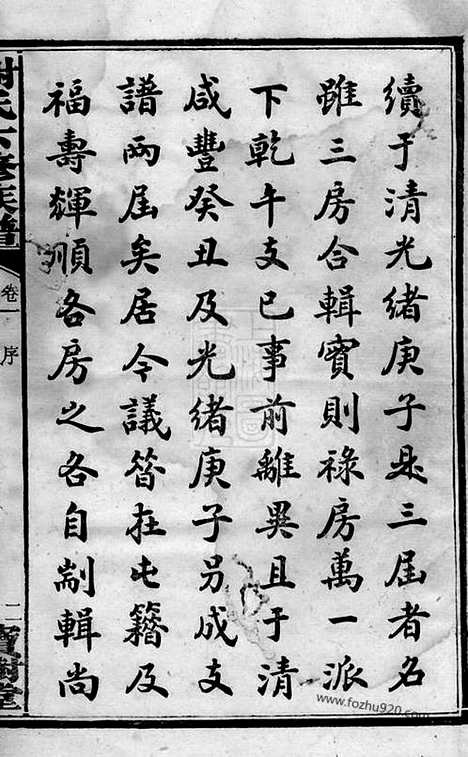 續于清光緒庚子是三屆者名
雖三房合輯實則祿房萬一派
下乾午支已事前離異且于清
咸豐癸丑及光緒庚子另成支
譜兩屆矣居今議簮在屯籍及
福壽輝順各房之各自剬輯尚
謝氏六修族譜
卷一
序
二
寶樹堂
www.fozhu920.com